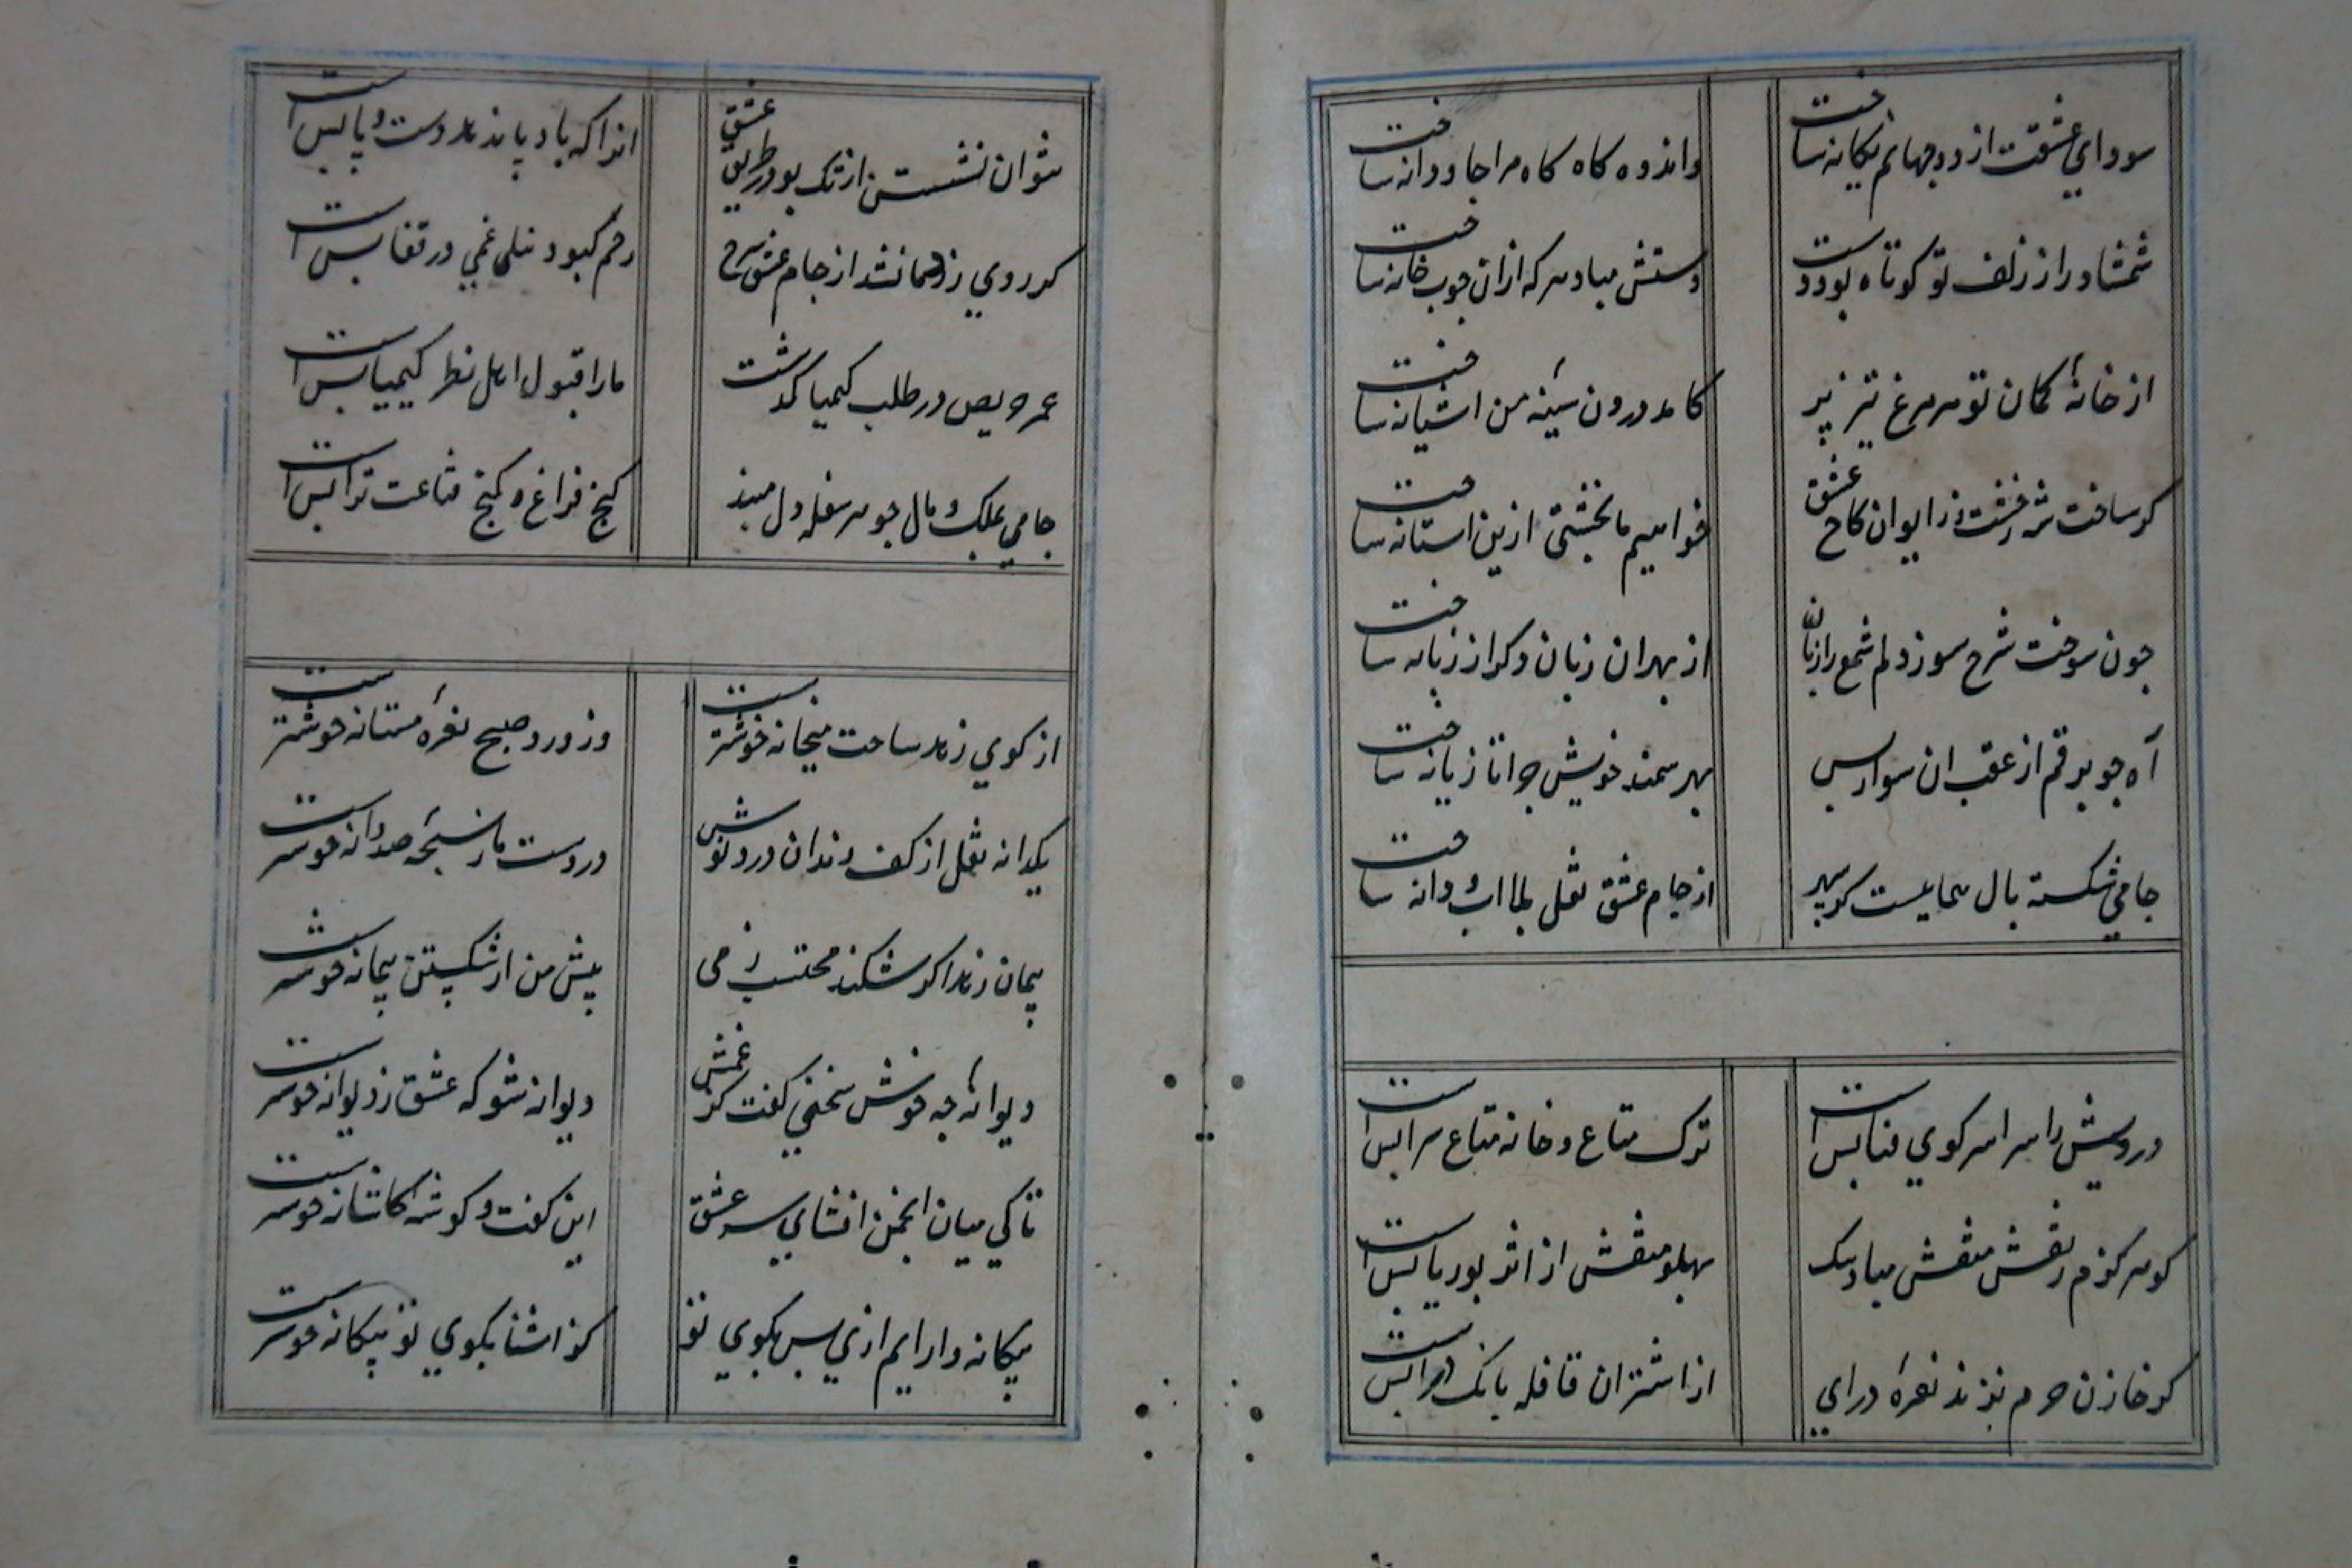 سودای عشقت از دو جهانم یکانه ساخت
واندوه کاه کاه مرا جاودانه ساخت
شمشاد را ز زلف تو کوتاه بود دست
دستش مباد هر که ازان چوب خانه ساخت
از خانهٔ کمان تو هر مرغ تیز پر
کامد درون سینه من اشیانه ساخت
کو ساخت شه ز ایوان کاخ عشق
خواهیم ما ازین استانه ساخت
چون سوخت شرح سوز دلم شمع را زبان
از بهر ان زبان دکر از زبانه ساخت
آه چو برقم از عقب ان سوار بس
بهر سمند خویش چرا تازیانه ساخت
جامی شکسته بال همایست کو سپهر
از جام عشق نقل بلا اب و دانه ساخت
درویش را سرا سر کوی فنا بس است
ترک متاع و خانه متاع سرا بس است
کو هرکزم نقش منقش مباد
پهلو منقش از اثر بوریا بس است
کو خازن حرم نزند نعرهٔ درای
از اشتران قافله بانک درا بس است
نتوان نشستن از تک بو در طریق عشق
انرا که باد پا نبود دست و پا بس است
کر روی زرد ما نشد از جام عشق سرخ
رقم کبود نیلی غمی در قفا بس است
عمر حریص در طلب کیمیا کذشت
ما را قبول اهل نظر کیمیا بس است
جامی بملک و مال چو هر سفله دل مبند
کنج فراغ و کنج قناعت ترا بس است
از کوی زهد ساحت میخانه خوشترست
وز ورد صبح نعرهٔ مستانه خوشترست
یکدانه نقل از کف رندان درد نوش
در دست ما ز سبحهٔ صد دانه خوشترست
پیمان زهد اکر شکند محتسب ز می
پیش من از شکستن پیمانه خوشترست
دیوانهٔ چه خوش سخنی کفت کز غمش
دیوانه شو که عشق ز دیوانه خوشترست
تا کی میان انجمن افشای سر عشق
این کفت و کو کاشانه خوشترست
بیکانه وار ایم ازین پس بکوی تو
کز اشنا بکوی تو بیکانه خوشترست